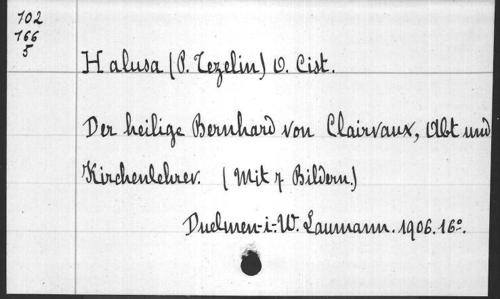 102
166
5
Halusa (P. Tezelin) O. Cist.
Der heilige Bernhard von Clairvaux, Abt und
Kirchenlehrer. (Mit 7 Bildern.)
Duelmen-i-W. Laumann. 1906. 16o.